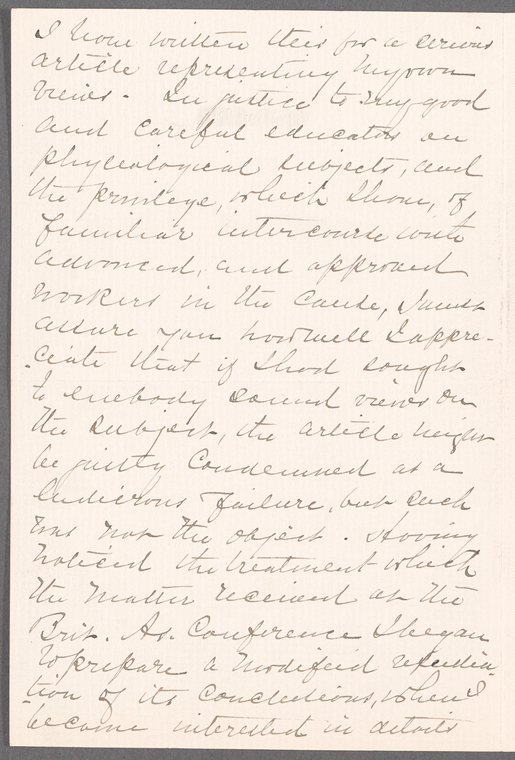 I have written this for a serious
article representing my own
views - In justice to my good
and careful educators on
physiological subjects, and
the privilege, which I have, of
familiar intercourse with
advanced, and approved
workers in the cause, I must
assure you how well I appre-
-ciate that if I had sought
to embody sound views on
the subject, the article might
be justly condemned as a
ludicrous failure, but such
was not the object. Having
noticed the treatment which
the matter received at the
Brit. As. Conference I began
to prepare a modified
-tion of its conclusions, when I
became interested in details